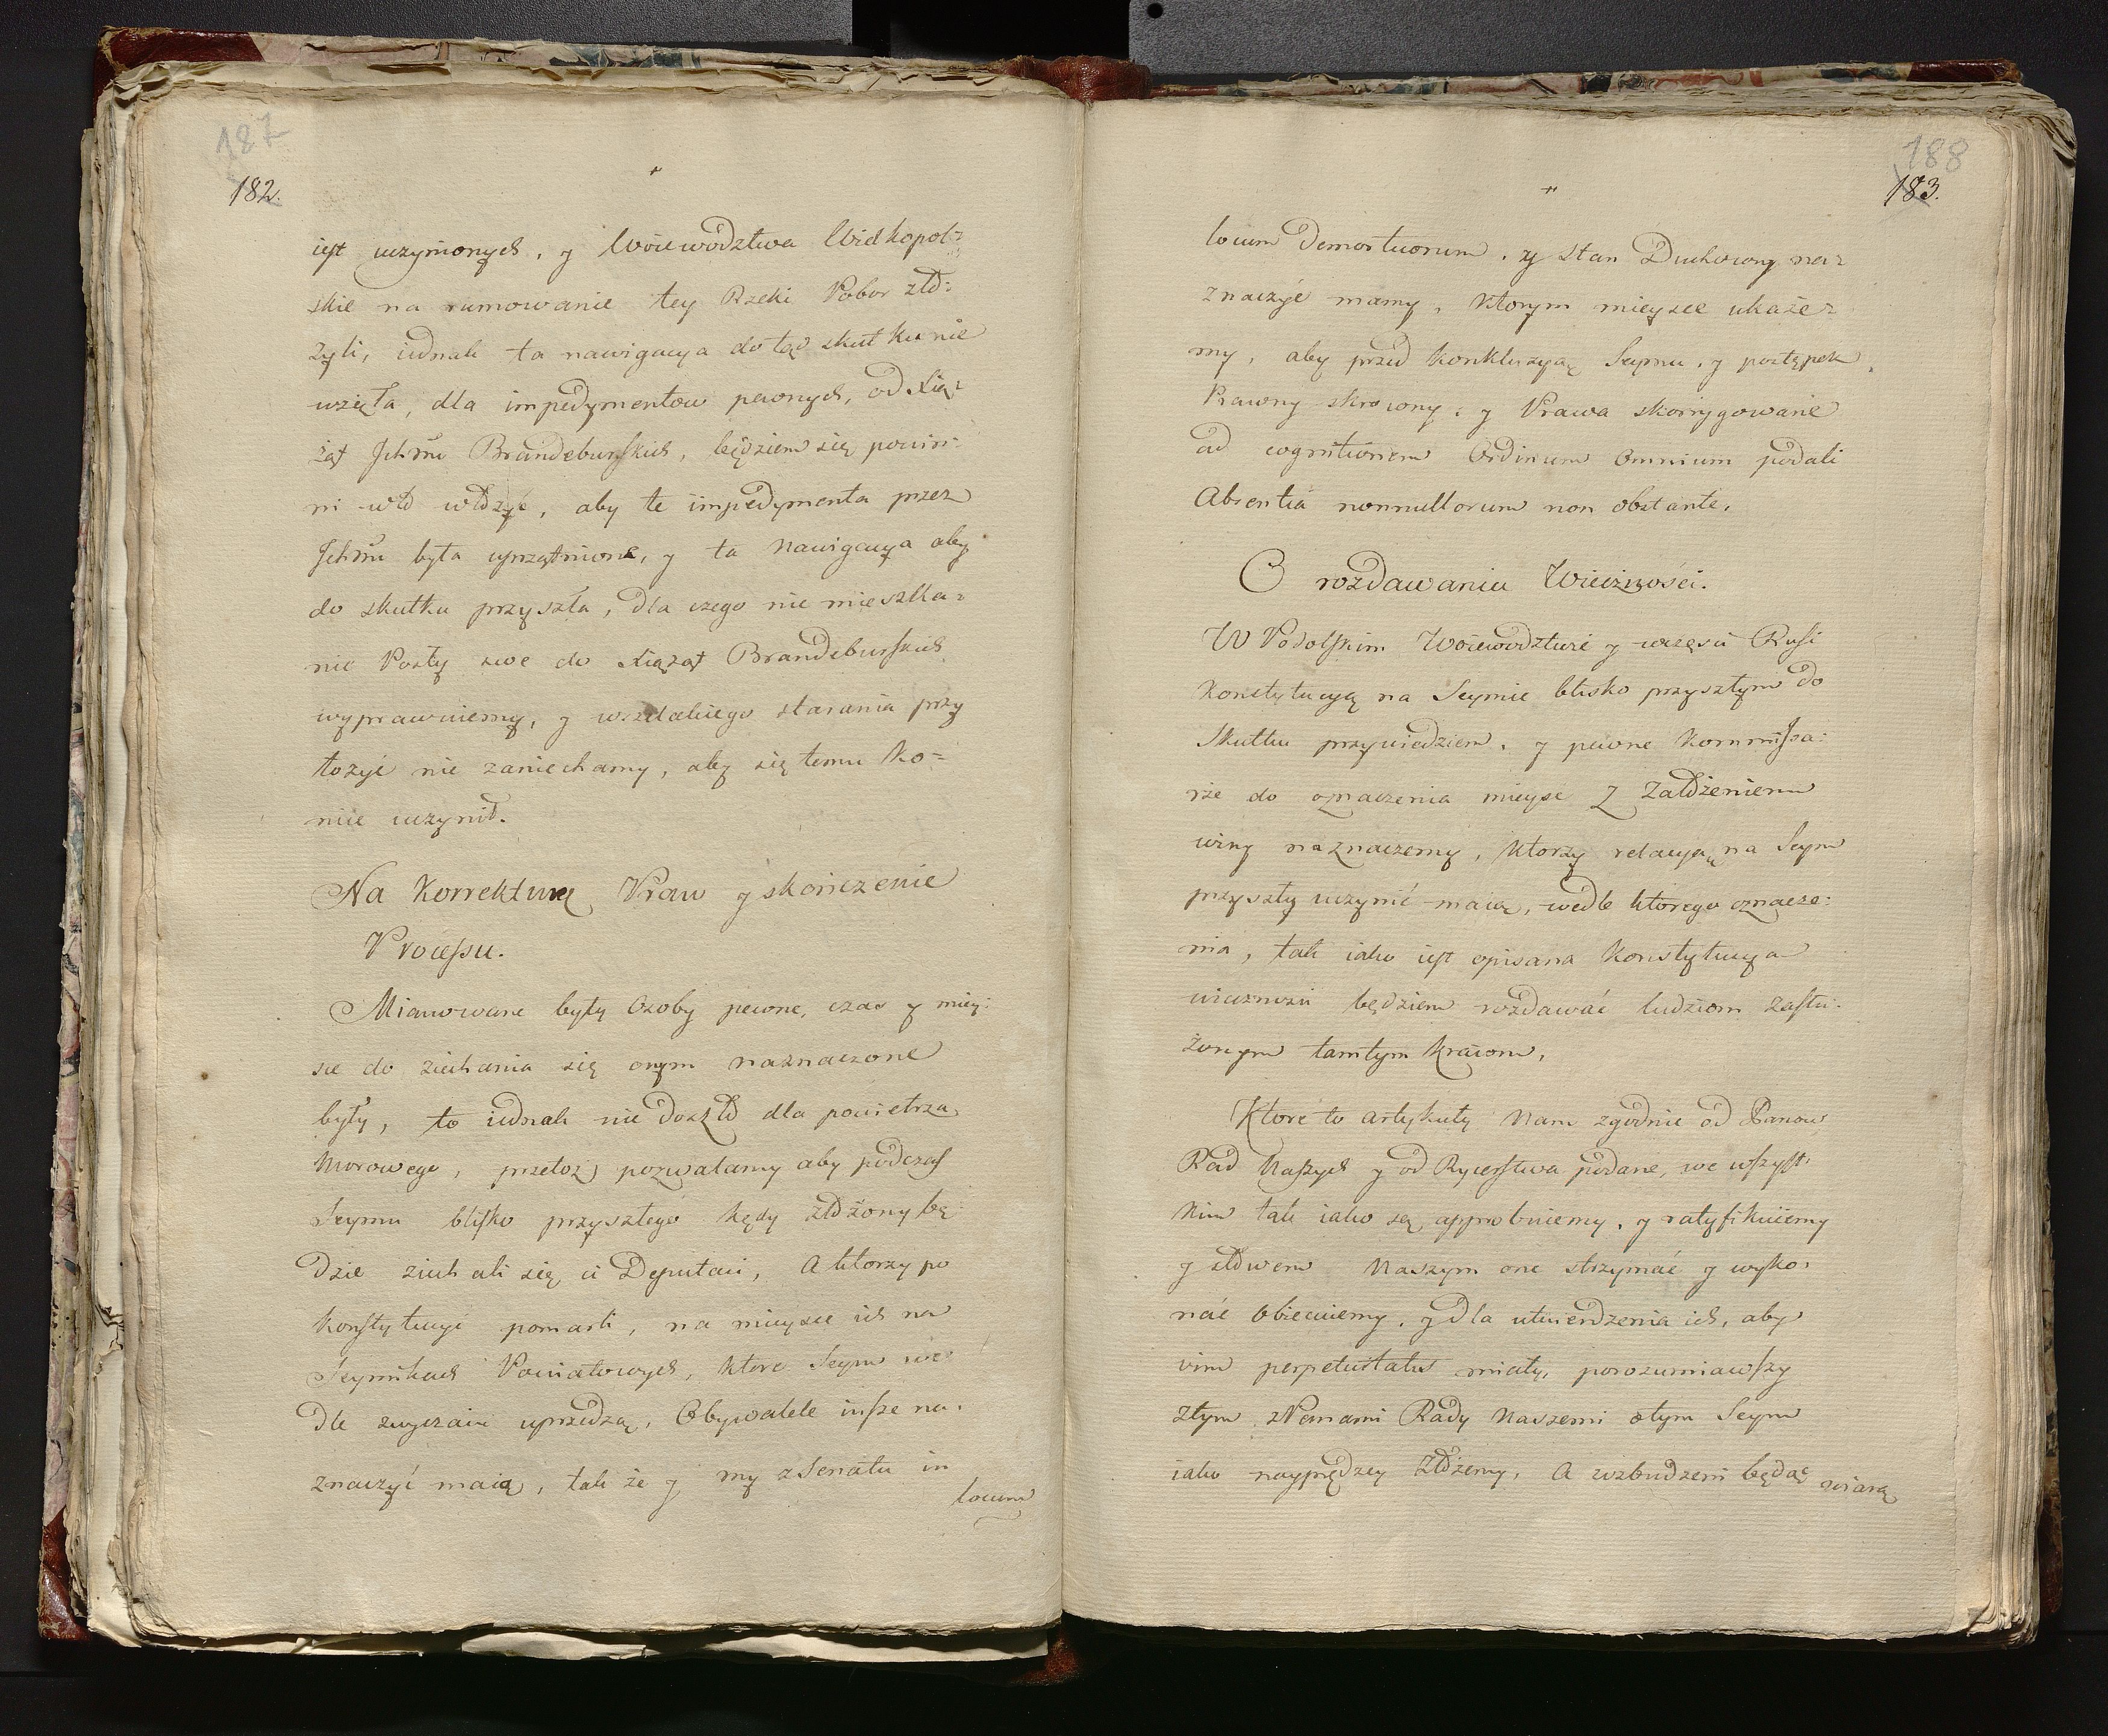 187
182.
iest uczynionych, y Woiewodztwa Wielkopol=
skie na rumowanie tey Rzeki Pobor zło=
żyli, iednak ta nawigacya do tąd skutku nie
wzięła, dla impedymentow pewnych, od Xią=
żąt Ichmć Brandeburskich, będziem się powin=
ni w to włożyć, aby te impedymenta przez
Ichmć była uprzątnione, y ta Nawigacya aby
do skutku przyszła, dla czego nie mieszka=
nie Posły swe do Xiążąt Brandeburskich
wyprawuiemy, y wszelakiego starania przy
łożyć nie zaniechamy, aby się temu Ko=
niec uczynił.
Na Korrekturę Praw y skończenie
Processu.
Mianowane były Osoby pewne, czas y miey=
sce do ziechania się onym naznaczone
były, to iednak nie doszło dla powietrza
Morowego, przetoż pozwalamy aby podczas
Seymu blisko przyszłego kędy złożony bę=
dzie ziechali się ci Deputaci, A ktorzy po
Konstytucyi pomarli, na mieysce ich na
Seymikach Powiatowych, ktore Seym we=
dle zwyczaiu uprzedzą, Obywatele insze na=
znaczyć maią, tak że y my z Senatu in
locum
188
183.
locum Demortuorum, zy Stan Duchowny na=
znaczyć mamy, Ktorym mieysce ukaże=
my, aby przed Konkluzyą Seymu, y postępek
Prawny skrocony, y Prawa skorrygowane
ad cognitionem Ordinum Omnium podali
Absentiá nonnullorum non obstante.
O rozdawaniu Wieczności.
W Podolskim Woiewodztwie y w części Rusi
Konstytucyą na Seymie blisko przyszłym do
Skutku przywiedziem, y pewne Kommissa=
rze do oznaczenia mieysc Z Założeniem
winy naznaczemy, Ktorzy relacyą na Seym
przyszły uczynić maią, wedle ktorego oznacze=
nia, tak iako iest opisana Konstytucya
wieczności będziem rozdawać ludziom zasłu=
żonym tamtym Kraiom.
Ktore to artykuły Nam zgodnie od Panow
Rad Naszych y od Rycerstwa podane, we wszyst=
kim tak iako są approbuiemy, y ratyfikuiemy
y słowem Naszym one strzymać y wyko=
nać Obiecuiemy, y dla utwierdzenia ich, aby
vim perpetuitatis miały, porozumiawszy
z tym z Panami Rady Naszemi o tym Seym
iako nayprędzey Złożemy, A wzbudzeni będąc
wiarą